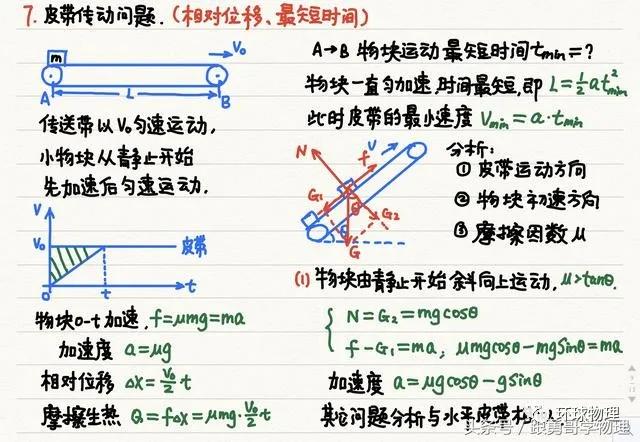 7. 皮带传动问题.(相对位移、最短时间)
m
V₀
A
L
B
传送带以V₀匀速运动,
小物块从静止开始
先加速后匀速运动.
V
V₀
皮带
0
t
t
物块0-t加速, f=μmg=ma
加速度 a=μg
相对位移 Δx=\frac{V₀}{2}t
摩擦生热 Q=fΔx=μmg·\frac{V₀}{2}t
A→B 物块运动最短时间tmin=?
物块一直匀加速,时间最短,即 L=\frac{1}{2}at²min
此时皮带的最小速度 Vmin=a·tmin
N
f
V
G₁
θ
G₂
θ
G
分析:
① 皮带运动方向
② 物块初速方向
③ 摩擦因数μ
(1) 物块由静止开始斜向上运动, μ>tanθ.
N=G₂=mgcosθ
f-G₁=ma, μmgcosθ-mgsinθ=ma
加速度 a=μgcosθ-gsinθ
其它问题分析与水平皮带
环球物理
头条号/跟勇哥学物理